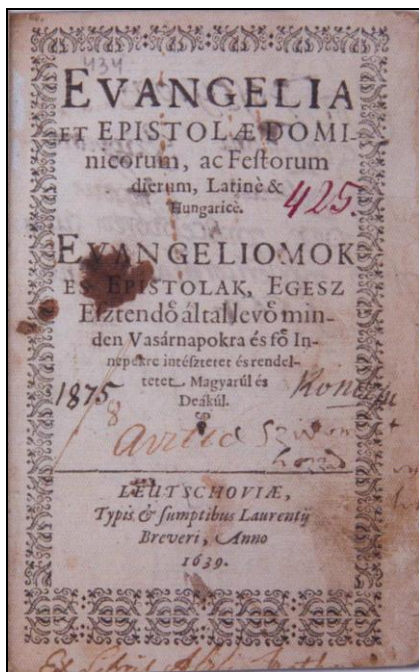 434
EVANGELIA
ET EPISTOLÆ DOMI-
nicorum, ac Feſtorum
dierum, Latinè &
Hungaricè.
425
EVANGELIOMOK
ES EPISTOLAK, EGESZ
Eſztendő által levő min-
den Vasárnapokra és fő In-
nepekre intéſztetet és rendel-
tetet Magyarúl és
Deákúl.
1875
8
LEUTSCHOVIÆ,
Typis & ſumptibus Laurentij
Breveri, Anno
1639.
Ex Libris